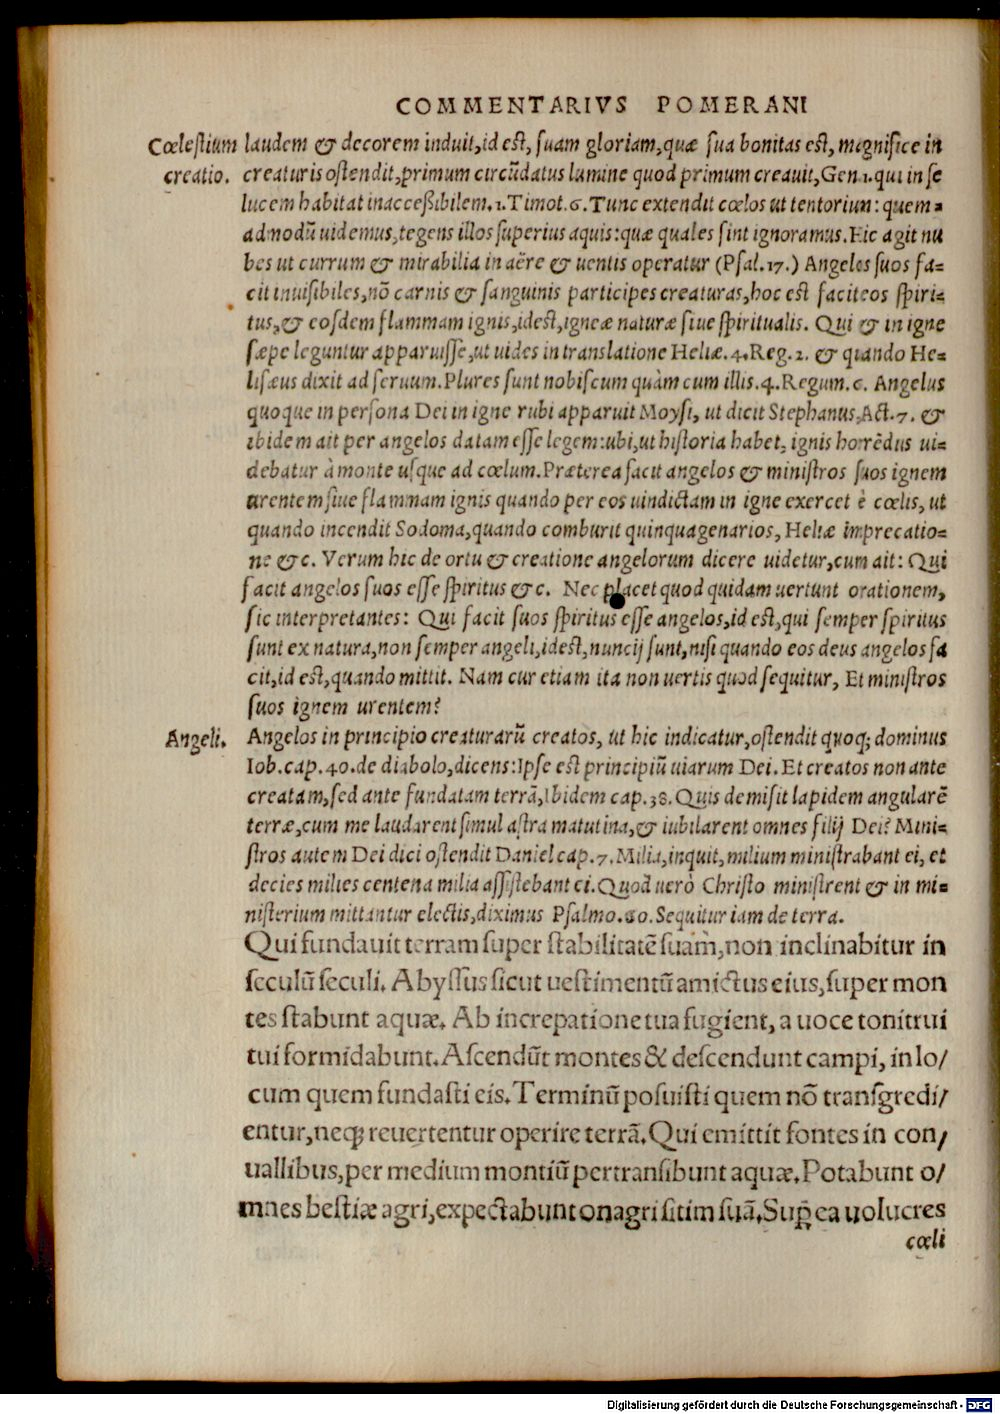 COMMENTARIVS POMERANI
Cœlestium laudem & decorem induit, id est, suam gloriam, quæ sua bonitas est, magnifice in
creatio. creaturis ostendit, primum circūdatus lumine quod primum creauit, Gen 1. qui in se
lucem habitat inaccessibilem. 1. Timot. 6. Tunc extendit cœlos ut tentorium: quem=
admodū uidemus, tegens illos superius aquis: quæ quales sint ignoramus. Hic agit nu
bes ut currum & mirabilia in aëre & uentis operatur (Psal. 17.) Angelos suos fa=
cit inuisibiles, nō carnis & sanguinis participes creaturas, hoc est facit eos spiri=
tus, & eosdem flammam ignis, idest, igneæ naturæ siue spiritualis. Qui & in igne
sæpe leguntur apparuisse, ut uides in translatione Heliæ. 4. Reg. 2. & quando He=
lisæus dixit ad seruum. Plures sunt nobiscum quàm cum illis. 4. Regum. 6. Angelus
quoque in persona Dei in igne rubi apparuit Moysi, ut dicit Stephanus, Act. 7. &
ibidem ait per angelos datam esse legem: ubi, ut historia habet, ignis horrēdus ui=
debatur à monte usque ad cœlum. Præterea facit angelos & ministros suos ignem
urentem siue flammam ignis quando per eos uindictam in igne exercet è cœlis, ut
quando incendit Sodoma, quando comburit quinquagenarios, Heliæ imprecatio=
ne &c. Verum hic de ortu & creatione angelorum dicere uidetur, cum ait: Qui
facit angelos suos esse spiritus &c. Nec placet quod quidam uertunt orationem,
sic interpretantes: Qui facit suos spiritus esse angelos, id est, qui semper spiritus
sunt ex natura, non semper angeli, idest, nuncij sunt, nisi quando eos deus angelos fa
cit, id est, quando mittit. Nam cur etiam ita non uertis quod sequitur, Et ministros
suos ignem urentem?
Angeli. Angelos in principio creaturarū creatos, ut hic indicatur, ostendit quoq; dominus
Iob. cap. 40. de diabolo, dicens: Ipse est principiū uiarum Dei. Et creatos non ante
creatam, sed ante fundatam terrā, Ibidem cap. 38. Quis demisit lapidem angularē
terræ, cum me laudarent simul astra matutina, & iubilarent omnes filij Dei? Mini=
stros autem Dei dici ostendit Daniel cap. 7. Milia, inquit, milium ministrabant ei, et
decies milies centena milia assistebant ei. Quod uero Christo ministrent & in mi=
nisterium mittantur electis, diximus Psalmo. 80. Sequitur iam de terra.
Qui fundauit terram super stabilitatē suam, non inclinabitur in
seculū seculi. Abyssus sicut uestimentū amictus eius, super mon
tes stabunt aquæ. Ab increpatione tua fugient, a uoce tonitrui
tui formidabunt. Ascendūt montes & descendunt campi, in lo/
cum quem fundasti eis. Terminū posuisti quem nō transgredi/
entur, neq; reuertentur operire terrā. Qui emittit fontes in con/
uallibus, per medium montiū pertransibunt aquæ. Potabunt o/
mnes bestiæ agri, expectabunt onagri sitim suā. Suꝑ ea uolucres
cœli
Digitalisierung gefördert durch die Deutsche Forschungsgemeinschaft - DFG